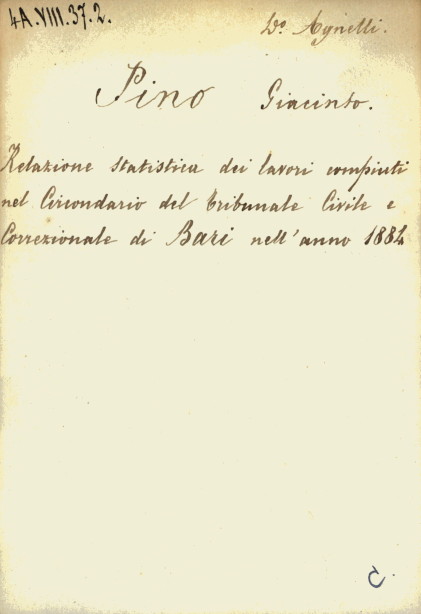 4A.VIII.37.2.
Do. Agnelli.
Pino Giacinto.
Relazione statistica dei lavori compiuti
nel Circondario del Tribunale Civile e
Correzionale di Bari nell'anno 1884
C.